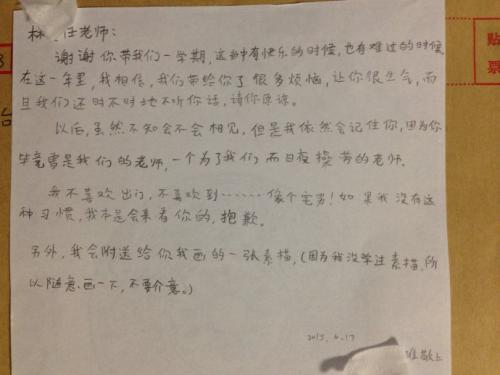 林 任老师：
谢谢你带我们一学期，这其中有快乐的时候，也有难过的时候
在这一年里，我相信，我们带给你了很多烦恼，让你很生气，而
且我们还时不时地不听你话，请你原谅。
以后，虽然不知会不会相见，但是我依然会记住你，因为你
毕竟曾是我们的老师，一个为了我们而日夜操劳的老师。
我不喜欢出门，不喜欢到……像个宅男！如果我没有这
种习惯，我市是会来看你的，抱歉。
另外，我会附送给你我画的一张素描，（因为我没学过素描，所
以随意画一下，不要介意。）
2015.6.17
敬上
贴
票